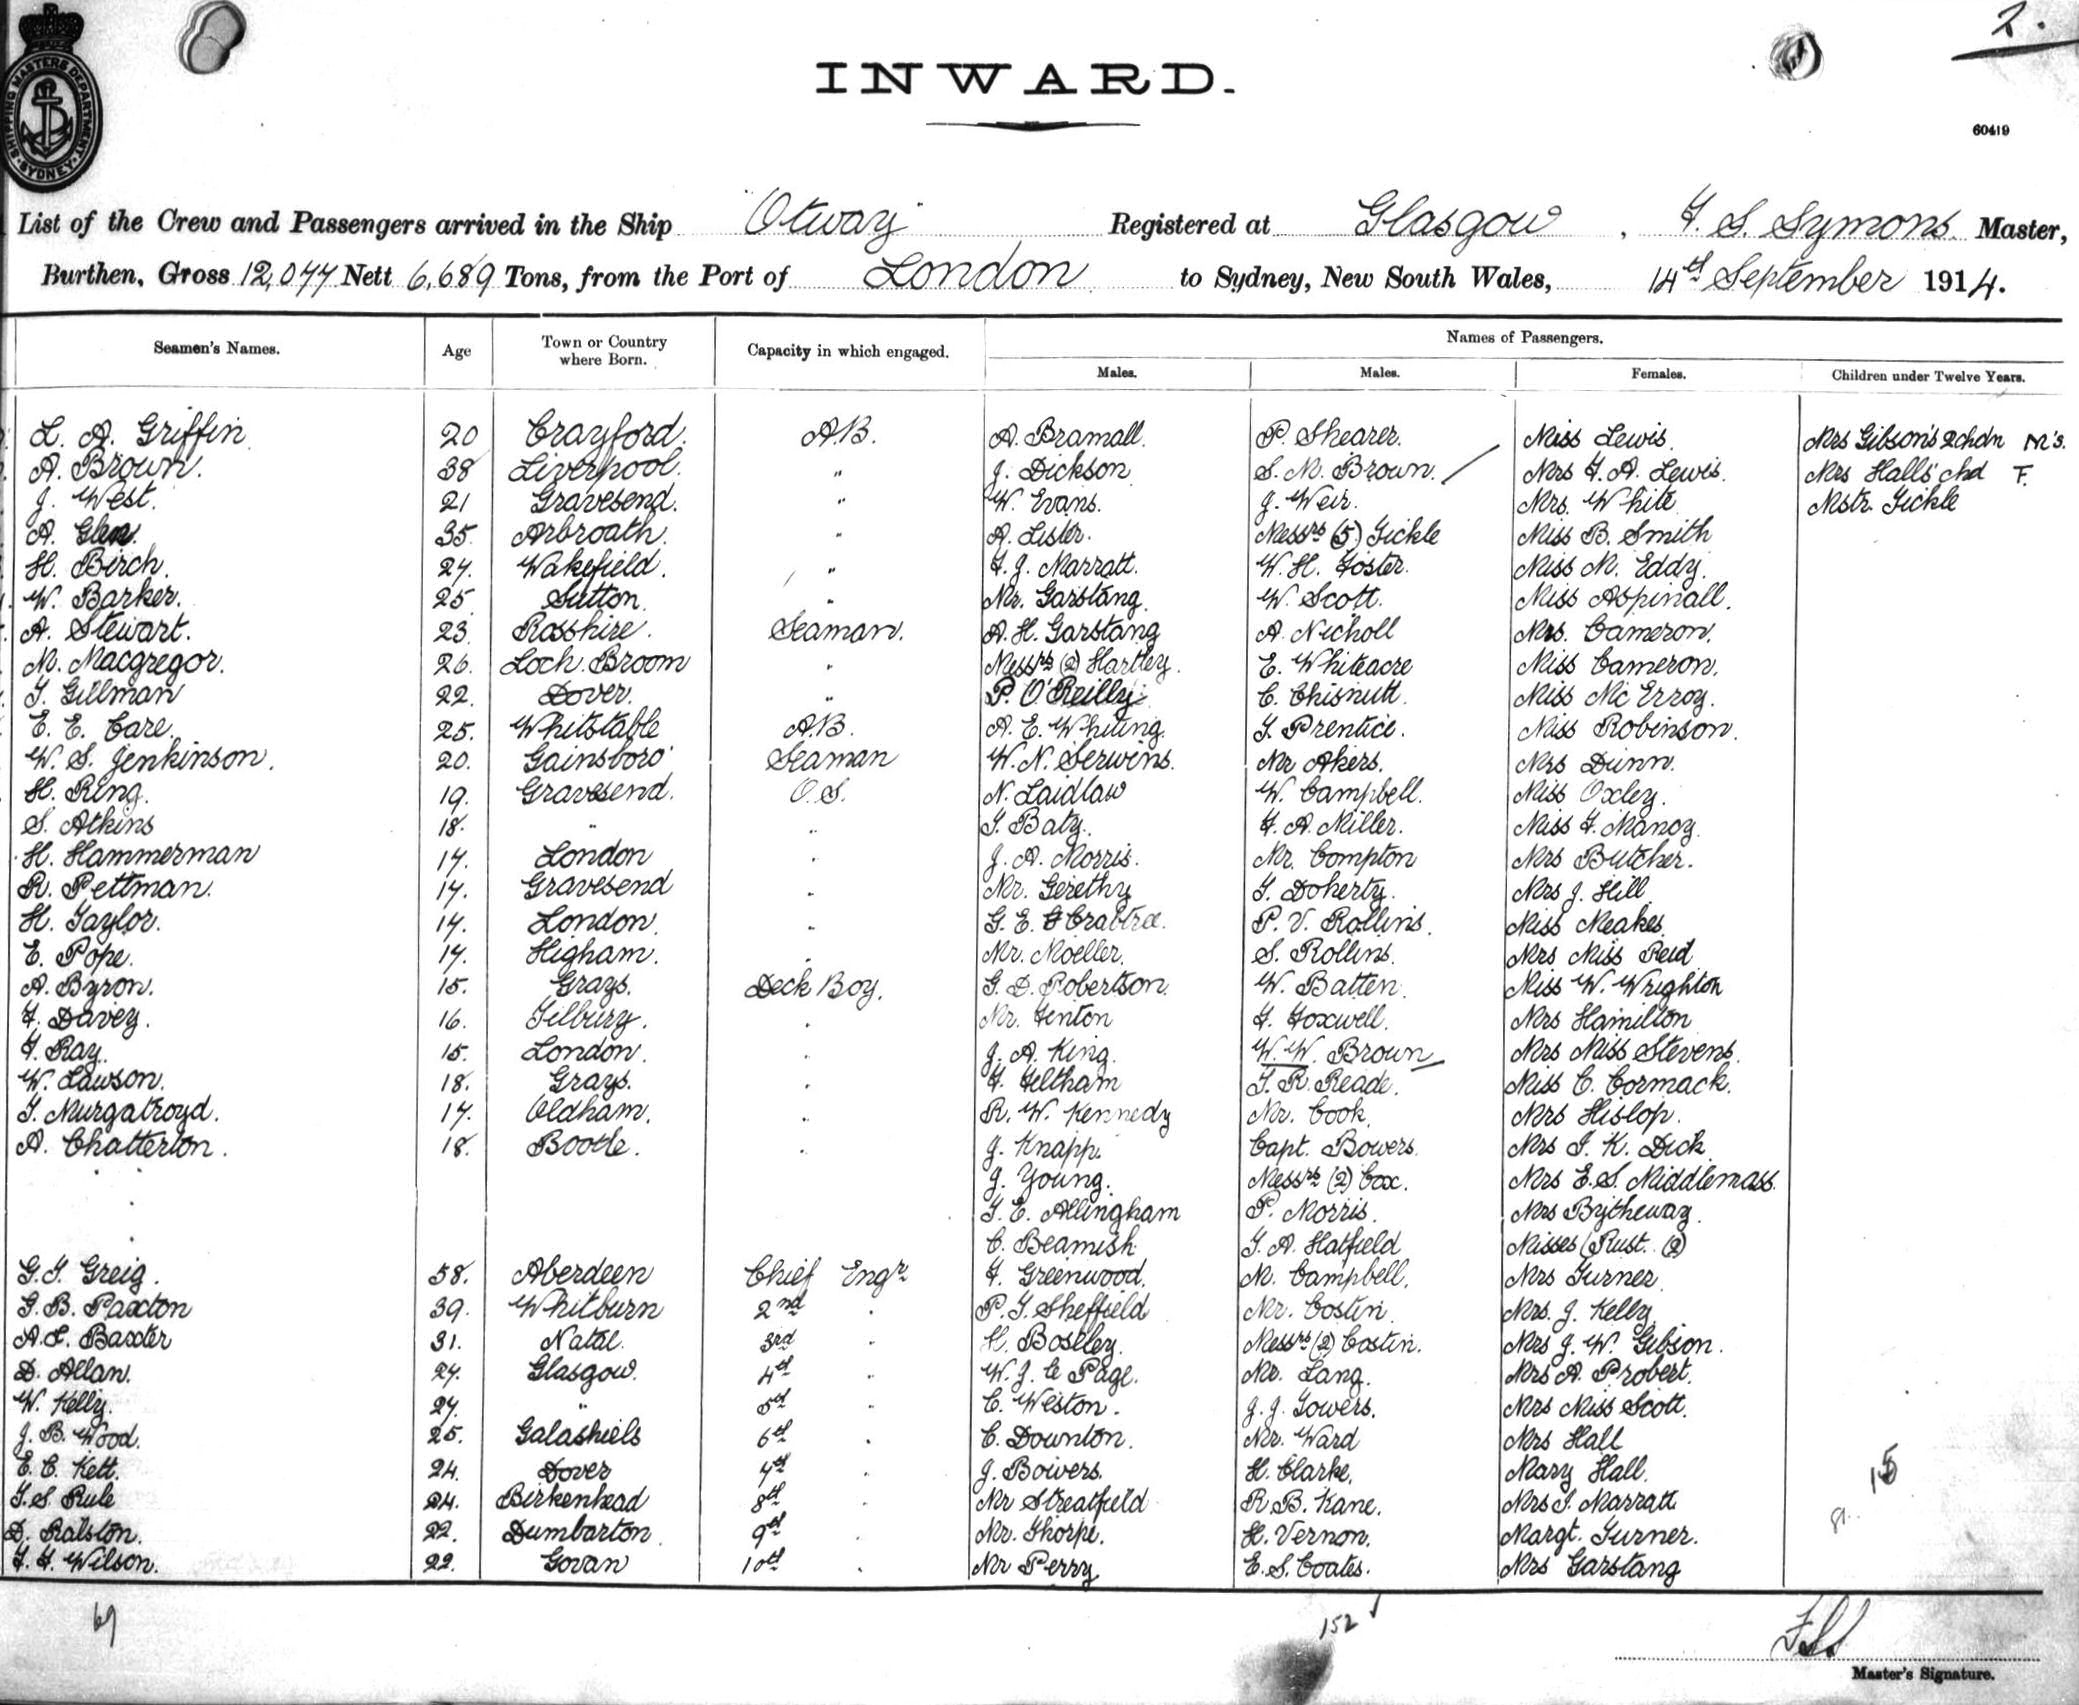 2.
INWARD.
60419
SHIPPING MASTERS DEPARTMENT SYDNEY
List of the Crew and Passengers arrived in the Ship Otway Registered at Glasgow, F. S. Symons. Master,
Burthen, Gross 12,077 Nett 6,689 Tons, from the Port of London to Sydney, New South Wales, 14th September 1914.
Seamen's Names. Age Town or Country where Born. Capacity in which engaged. Names of Passengers.
Males. Males. Females. Children under Twelve Years.
L. A. Griffin 20 Crayford. A.B. A. Bramall. P. Shearer. Miss Lewis. Mrs Gibson's 2 chdn M's.
A. Brown. 38 Liverpool. " J. Dickson S. M. Brown. Mrs F. A. Lewis. Mrs Halls' chd F.
J. West. 21 Gravesend. " W. Evans. J. Weir. Mrs. White Mstr. Tickle
A. Glen. 35. Arbroath. " A. Lister. Messrs (5) Tickle Miss B. Smith
H. Birch. 27. Wakefield. " F. J. Marratt. W. H. Foster. Miss M. Eddy.
W. Barker. 25 Sutton. " Mr. Garstang. W. Scott. Miss Aspinall.
A. Stewart. 23. Rosshire. Seaman. A. H. Garstang A. Nicholl Mrs. Cameron.
M. Macgregor. 26. Loch. Broom " Messrs (2) Hartley. E. Whiteacre Miss Cameron.
T. Gillman 22. Dover. " P. O'Reilly. C. Chisnutt. Miss McErroy.
E. E. Care. 25. Whitstable A.B. A. E. Whiting. T. Prentice. Miss Robinson.
W. S. Jenkinson. 20. Gainsboro' Seaman W. N. Serwins. Mr Akers. Mrs Dunn.
H. Ring. 19. Gravesend. O.S. N. Laidlaw W. Campbell. Miss Oxley.
S. Atkins 18. " " T. Baty. F. A. Miller. Miss F. Manoy.
H. Hammerman 17. London " J. A. Morris. Mr. Compton Mrs Butcher.
R. Pettman. 17. Gravesend " Mr. Gerethy T. Doherty. Mrs J. Hill
H. Taylor. 17. London. " G. E. G Crabtree. P. V. Rollins. Miss Meakes.
E. Pope. 17. Higham. " Mr. Moeller. S. Rollins. Mrs Miss Reid
A. Byron. 15. Grays. Deck Boy. G. D. Robertson. W. Batten. Miss W. Wrighton
F. Davey. 16. Tilbury. " Mr. Fenton F. Foxwell. Mrs Hamilton
F. Ray. 15. London. " J. A. King. W. W. Brown Mrs Miss Stevens.
W. Lawson. 18. Grays. " F. Feltham T. R. Reade. Miss C. Cormack.
T. Murgatroyd. 17. Oldham. " R. W. Kennedy Mr. Cook. Mrs Hislop.
A. Chatterton. 18. Bootle. " J. Knapp. Capt. Bowers. Mrs I. K. Dick
J. Young. Messrs (2) Cox. Mrs E. S. Middlemass.
T. E. Allingham P. Morris. Mrs Bytheway.
C. Beamish. T. A. Hatfield Misses (Rust. (2)
G. T. Greig. 58. Aberdeen Chief Engr. F. Greenwood. M. Campbell. Mrs Turner.
G. B. Paxton 39. Whitburn 2nd " P. T. Sheffield Mr. Costin Mrs. J. Kelly
A. L. Baxter 31. Natal. 3rd " H. Bostley. Messrs (2) Costin. Mrs J. W. Gibson.
D. Allan. 27. Glasgow. 4th " W. J. le Page. Mr. Lang. Mrs A. Probert.
W. Kelly. 27. " 5th " C. Weston. J. J. Towers. Mrs Miss Scott.
J. B. Wood. 25. Galashiels 6th " C. Downton. Mr. Ward Mrs Hall
E. C. Kett. 24. Dover 7th " J. Bowers. H. Clarke. Mary Hall. 15
T. S. Rule 24. Birkenhead 8th " Mr Streatfield R. B. Kane. Mrs I. Marratt
D. Ralston. 22. Dumbarton. 9th " Mr. Thorpe. H. Vernon. Margt. Turner.
T. F. Wilson. 22. Govan 10th " Mr Perry E. S. Coates. Mrs Garstang
69 152
Master's Signature.